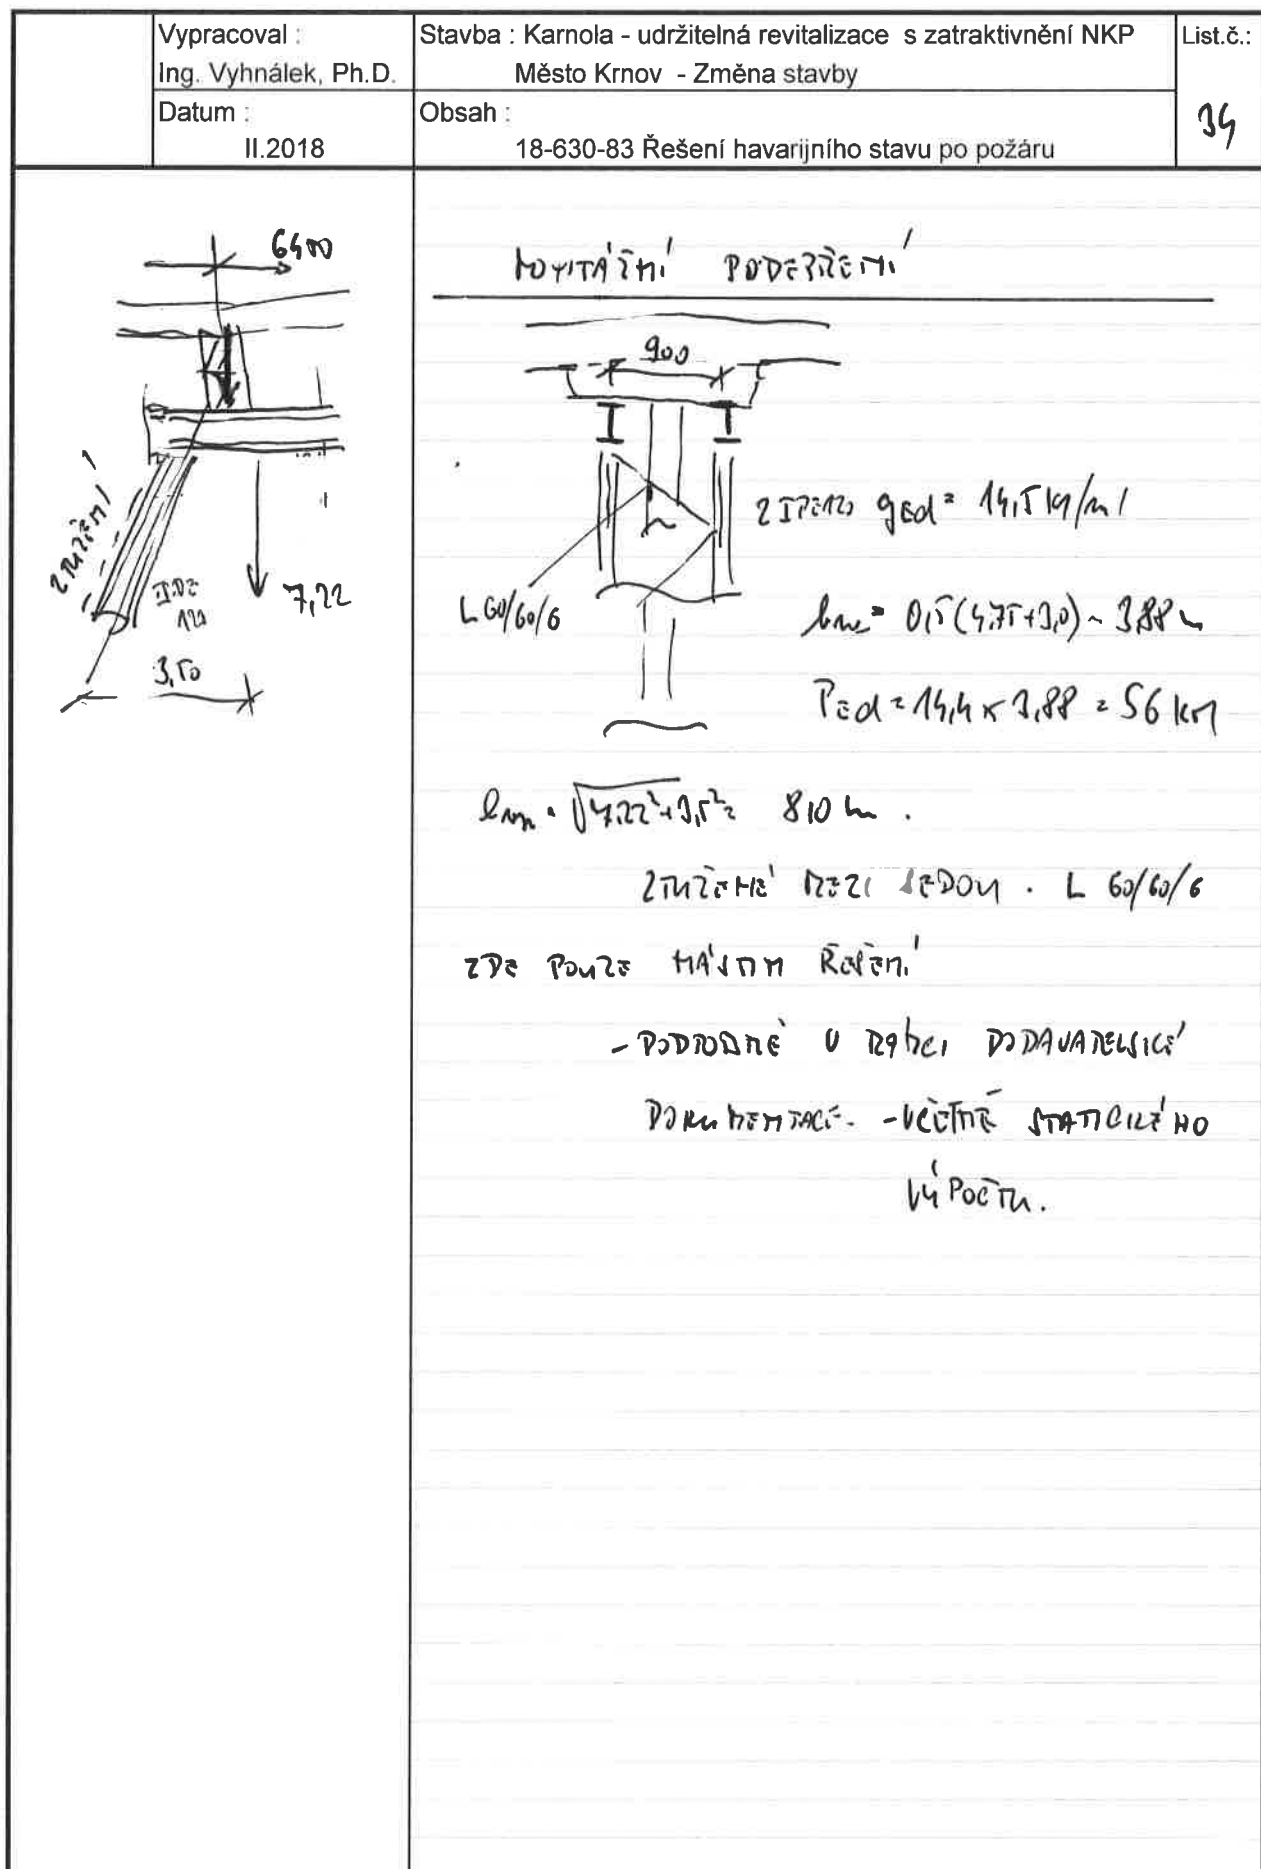 Vypracoval :
Ing. Vyhnálek, Ph.D.
Stavba : Karnola - udržitelná revitalizace s zatraktivnění NKP
Město Krnov - Změna stavby
List.č.:
34
Datum :
II.2018
Obsah :
18-630-83 Řešení havarijního stavu po požáru
6400
ZTUŽENÍ
IPE
120
7,22
3,50
MONTÁŽNÍ PODEPŘENÍ
900
2 IPE120 gEd = 14,5 kN/m
L 60/60/6
= 0,5 (4,75+3,0) ~ 3,88 m
PEd = 14,4 x 3,88 = 56 kN
= √7,22²+3,5² = 8,0 m .
ZTUŽENÉ MEZI SEBOU . L 60/60/6
ZDE POUZE NÁSTIN ŘEŠENÍ
- PODROBNĚ V RÁMCI DODAVATELSKÉ
DOKUMENTACE - VČETNĚ STATICKÉHO
VÝPOČTU.